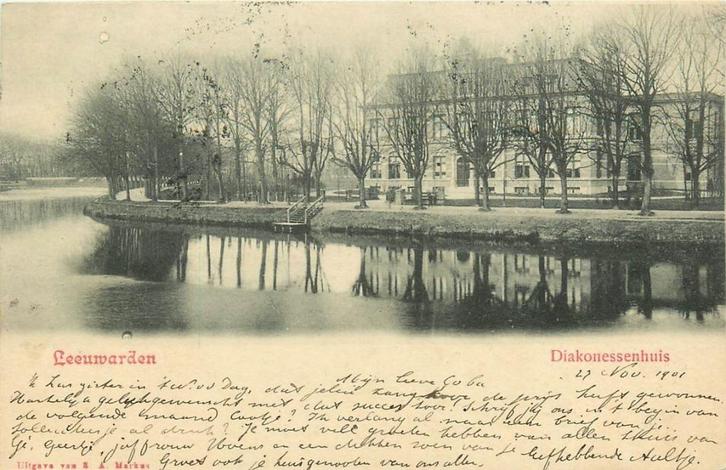 Leeuwarden
Diakonessenhuis
27 Nov. 1901
Mijn lieve Coba
Ik las gister in 't Dag, dat jelui zangkoor de prijs heeft gewonnen.
Hartelijk gelukgewenscht met dat succes hoor. Schrijf jij ons in 't begin van
de volgende maand Cootje? Ik verlang al naar een brief van je.
al druk? Je moet veel groeten hebben van allen thuis van
Ge, Geertje, juffrouw en een dikken zoen van je liefhebbende Aaltje.
Groet ook je huisgenooten van ons allen.
Uitgave van S. A. Markus